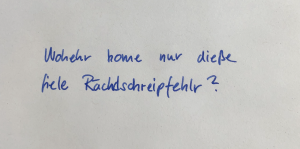 Wohehr kome nur dieße
fiele Rachdschreipfehlr?